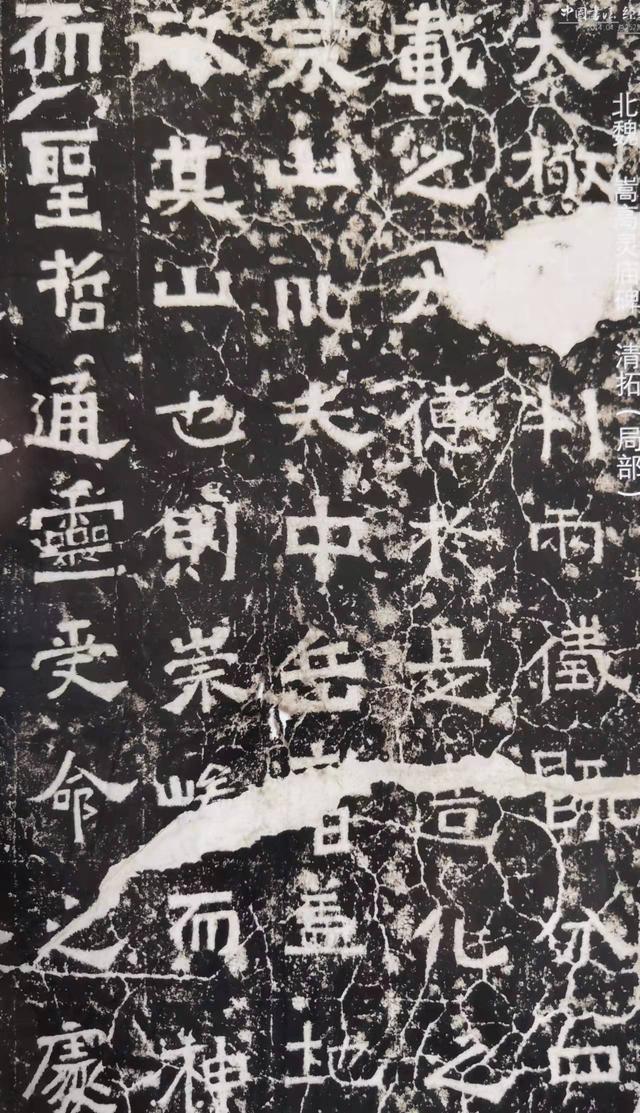 太極判兩儀既分四
載之大德於是造化之
宗山以夫中岳者蓋地
故其山也則崇峻而神
而聖哲通靈受命之處
北魏 嵩高灵庙碑 清拓（局部）